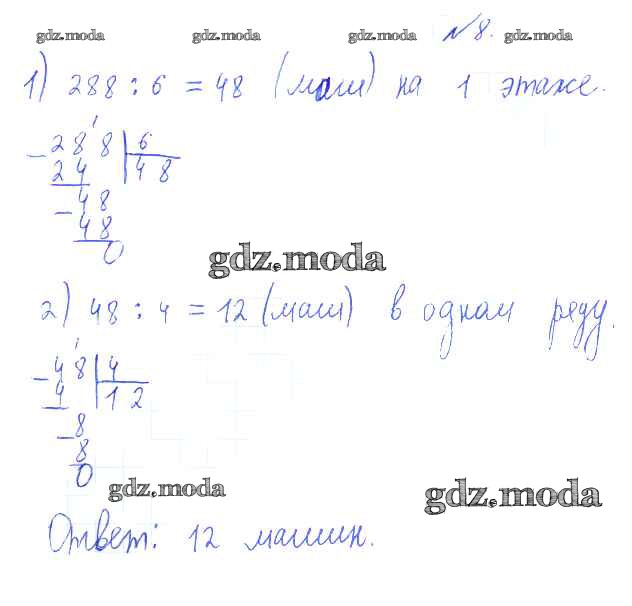 gdz.moda gdz.moda gdz.moda №8. gdz.moda
1) 288 : 6 = 48 (маш) на 1 этаже.
288 6
24 48
48
48
0
gdz.moda
2) 48 : 4 = 12 (маш) в одном ряду.
48 4
4 12
8
8
0
gdz.moda gdz.moda
Ответ: 12 машин.